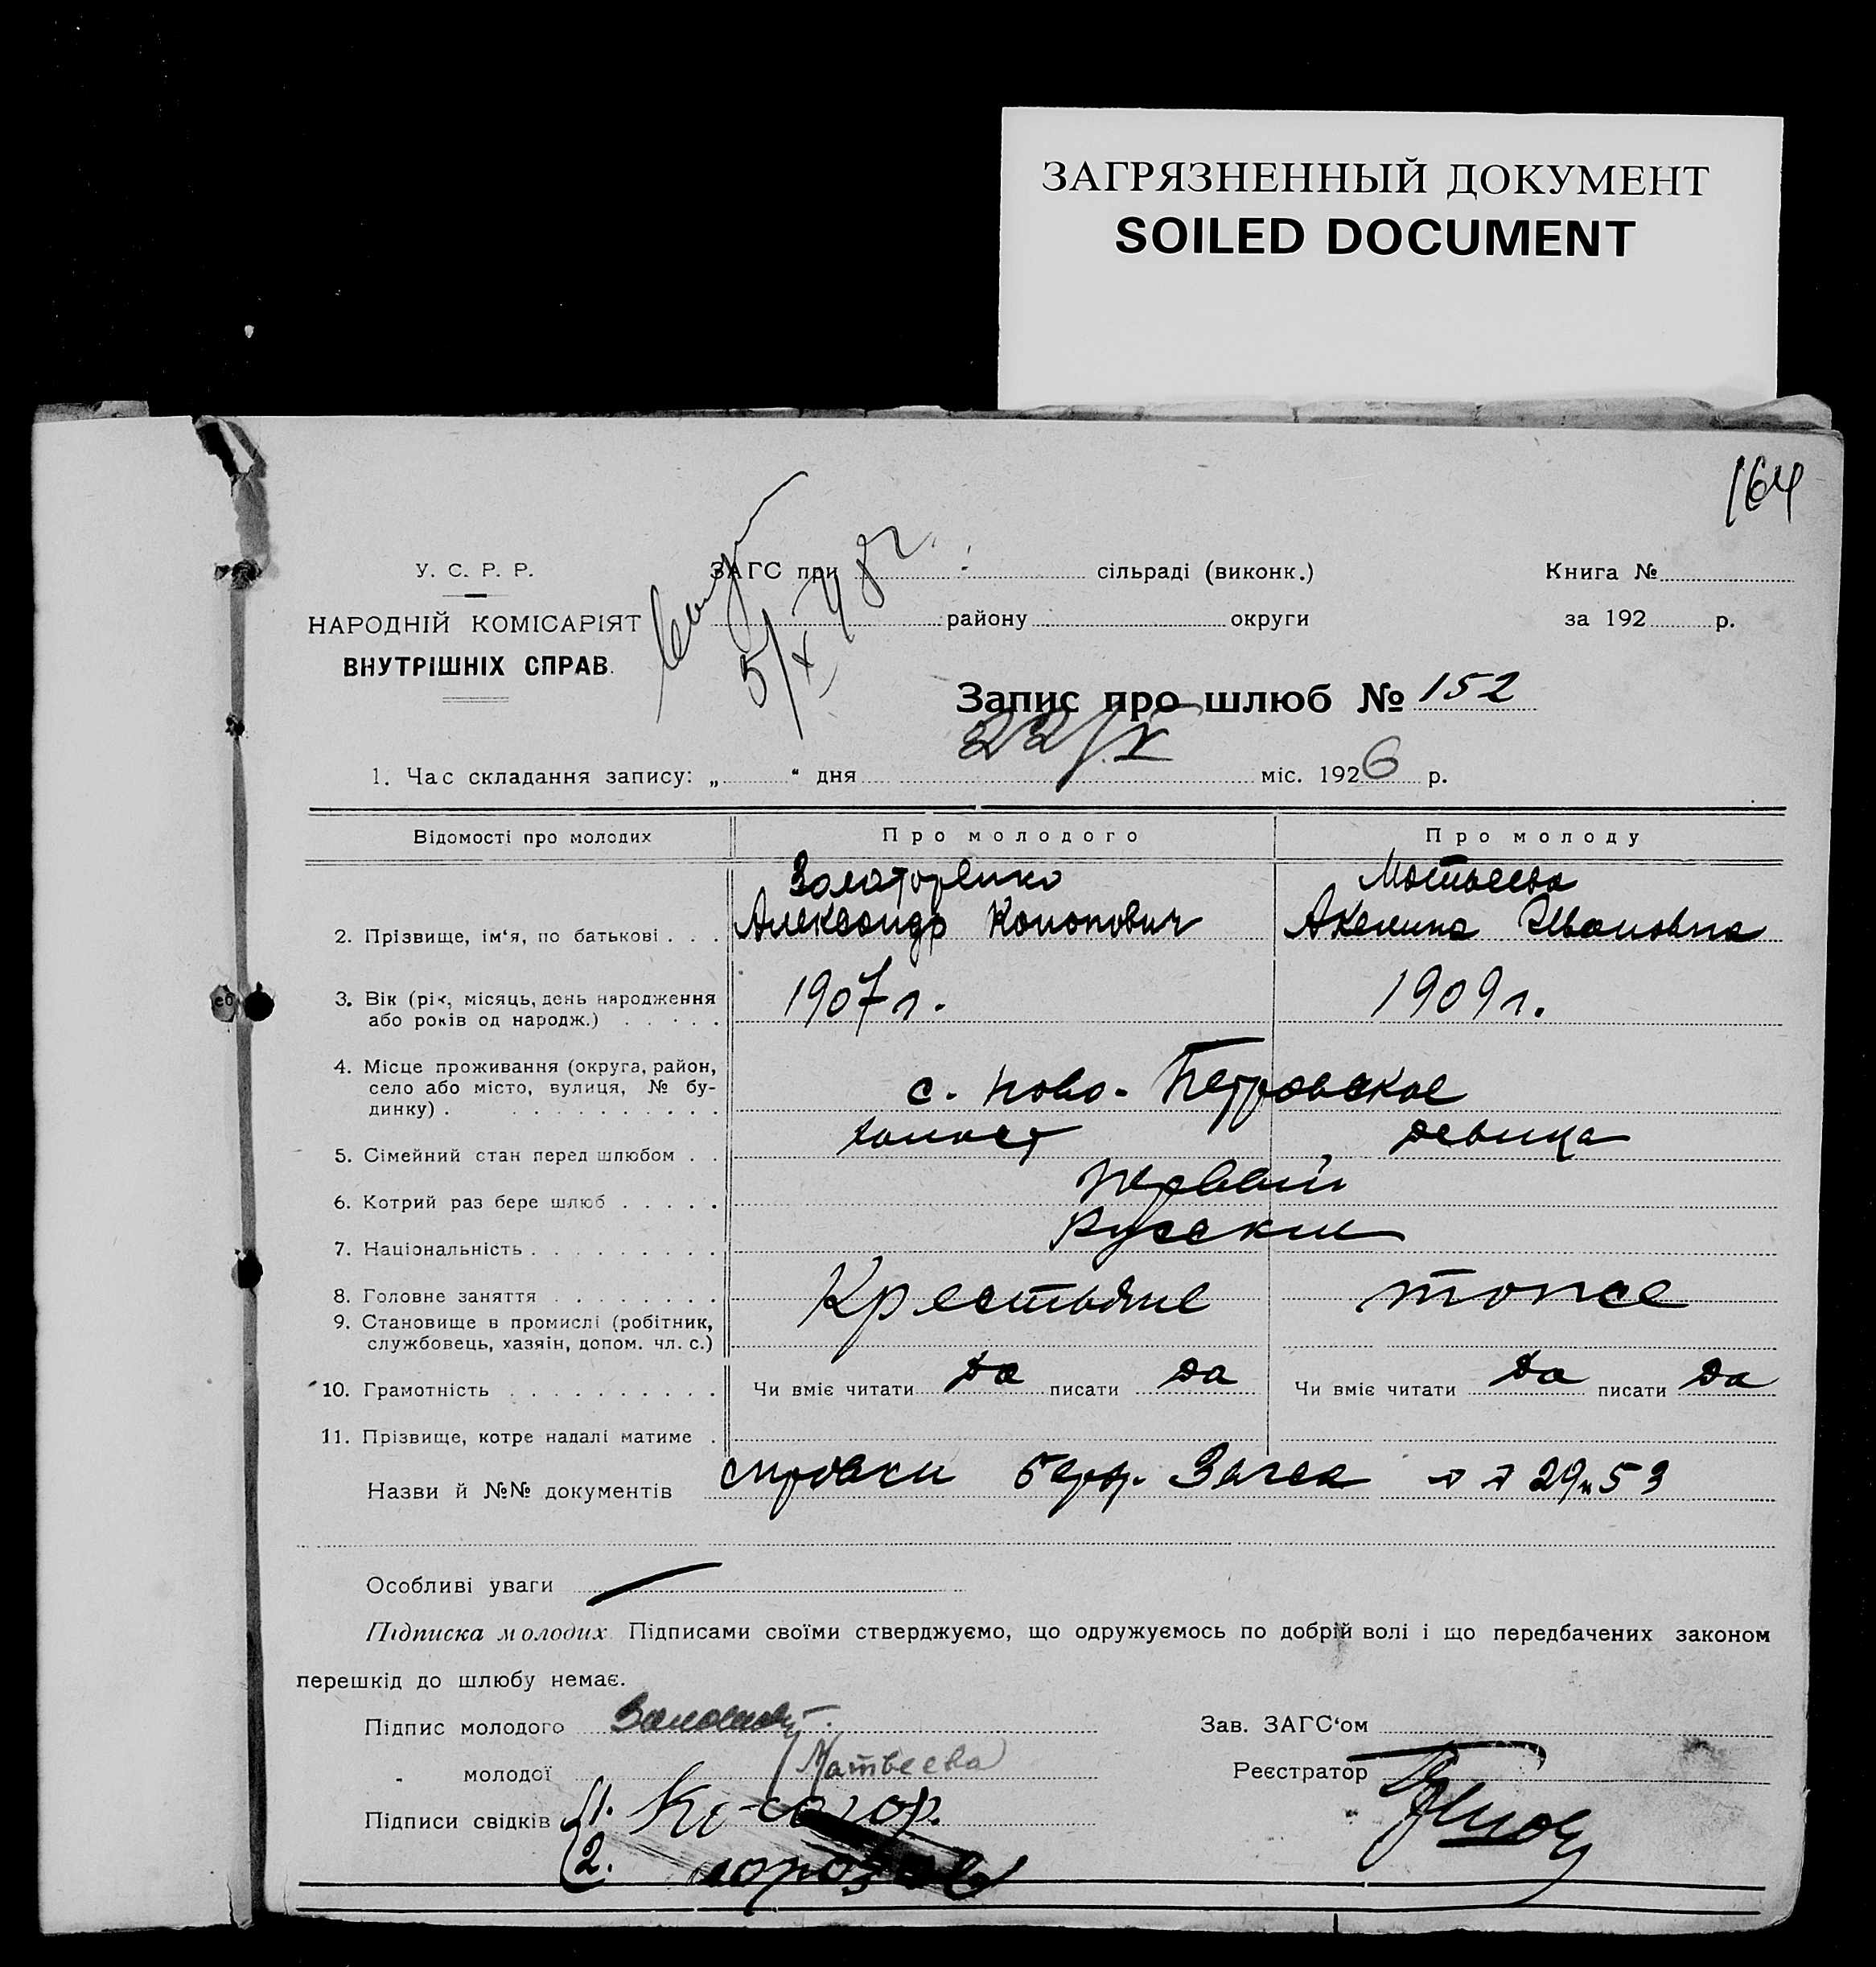 ЗАГРЯЗНЕННЫЙ ДОКУМЕНТ
SOILED DOCUMENT
164
У. С. Р. Р.
НАРОДНІЙ КОМІСАРІЯТ
ВНУТРІШНІХ СПРАВ.
ЗАГС при сільраді (виконк.)
району округи
Книга №
за 192 р.
5/X
Запис про шлюб № 152
22/X
1. Час складання запису: „ “ дня міс. 1926 р.
Відомості про молодих Про молодого Про молоду
Золаторенко Матвеева
2. Прізвище, ім‘я, по батькові . . . Александр Кононович Акелина Ивановна
3. Вік (рік, місяць, день народження 1907 г. 1909 г.
або років од народж.) . . . . .
4. Місце проживання (округа, район,
село або місто, вулиця, № бу- с. Ново-Петровское
динку) . . . . . . . . . . .
5. Сімейний стан перед шлюбом . . холост девица
6. Котрий раз бере шлюб . . . . . первый
7. Національність . . . . . . . . . Русские
8. Головне заняття . . . . . . . . Крестьяне тоже
9. Становище в промислі (робітник,
службовець, хазяїн, допом. чл. с.)
10. Грамотність . . . . . . . . . . Чи вміє читати да писати да Чи вміє читати да писати да
11. Прізвище, котре надалі матиме .
Назви й №№ документів справки Загса 29 и 53
Особливі уваги
Підписка молодих. Підписами своїми стверджуємо, що одружуємось по добрій волі і що передбачених законом
перешкід до шлюбу немає.
Підпис молодого Зав. ЗАГС‘ом
„ молодої Матвеева Реєстратор
Підписи свідків 1.
2.